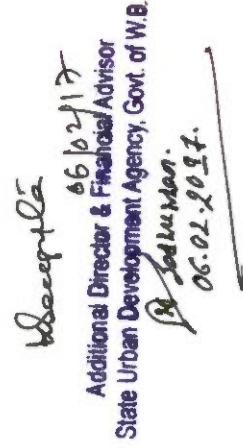 06/02/17
Additional Director & Financial Advisor
State Urban Development Agency, Govt. of W.B.
06.02.2017.